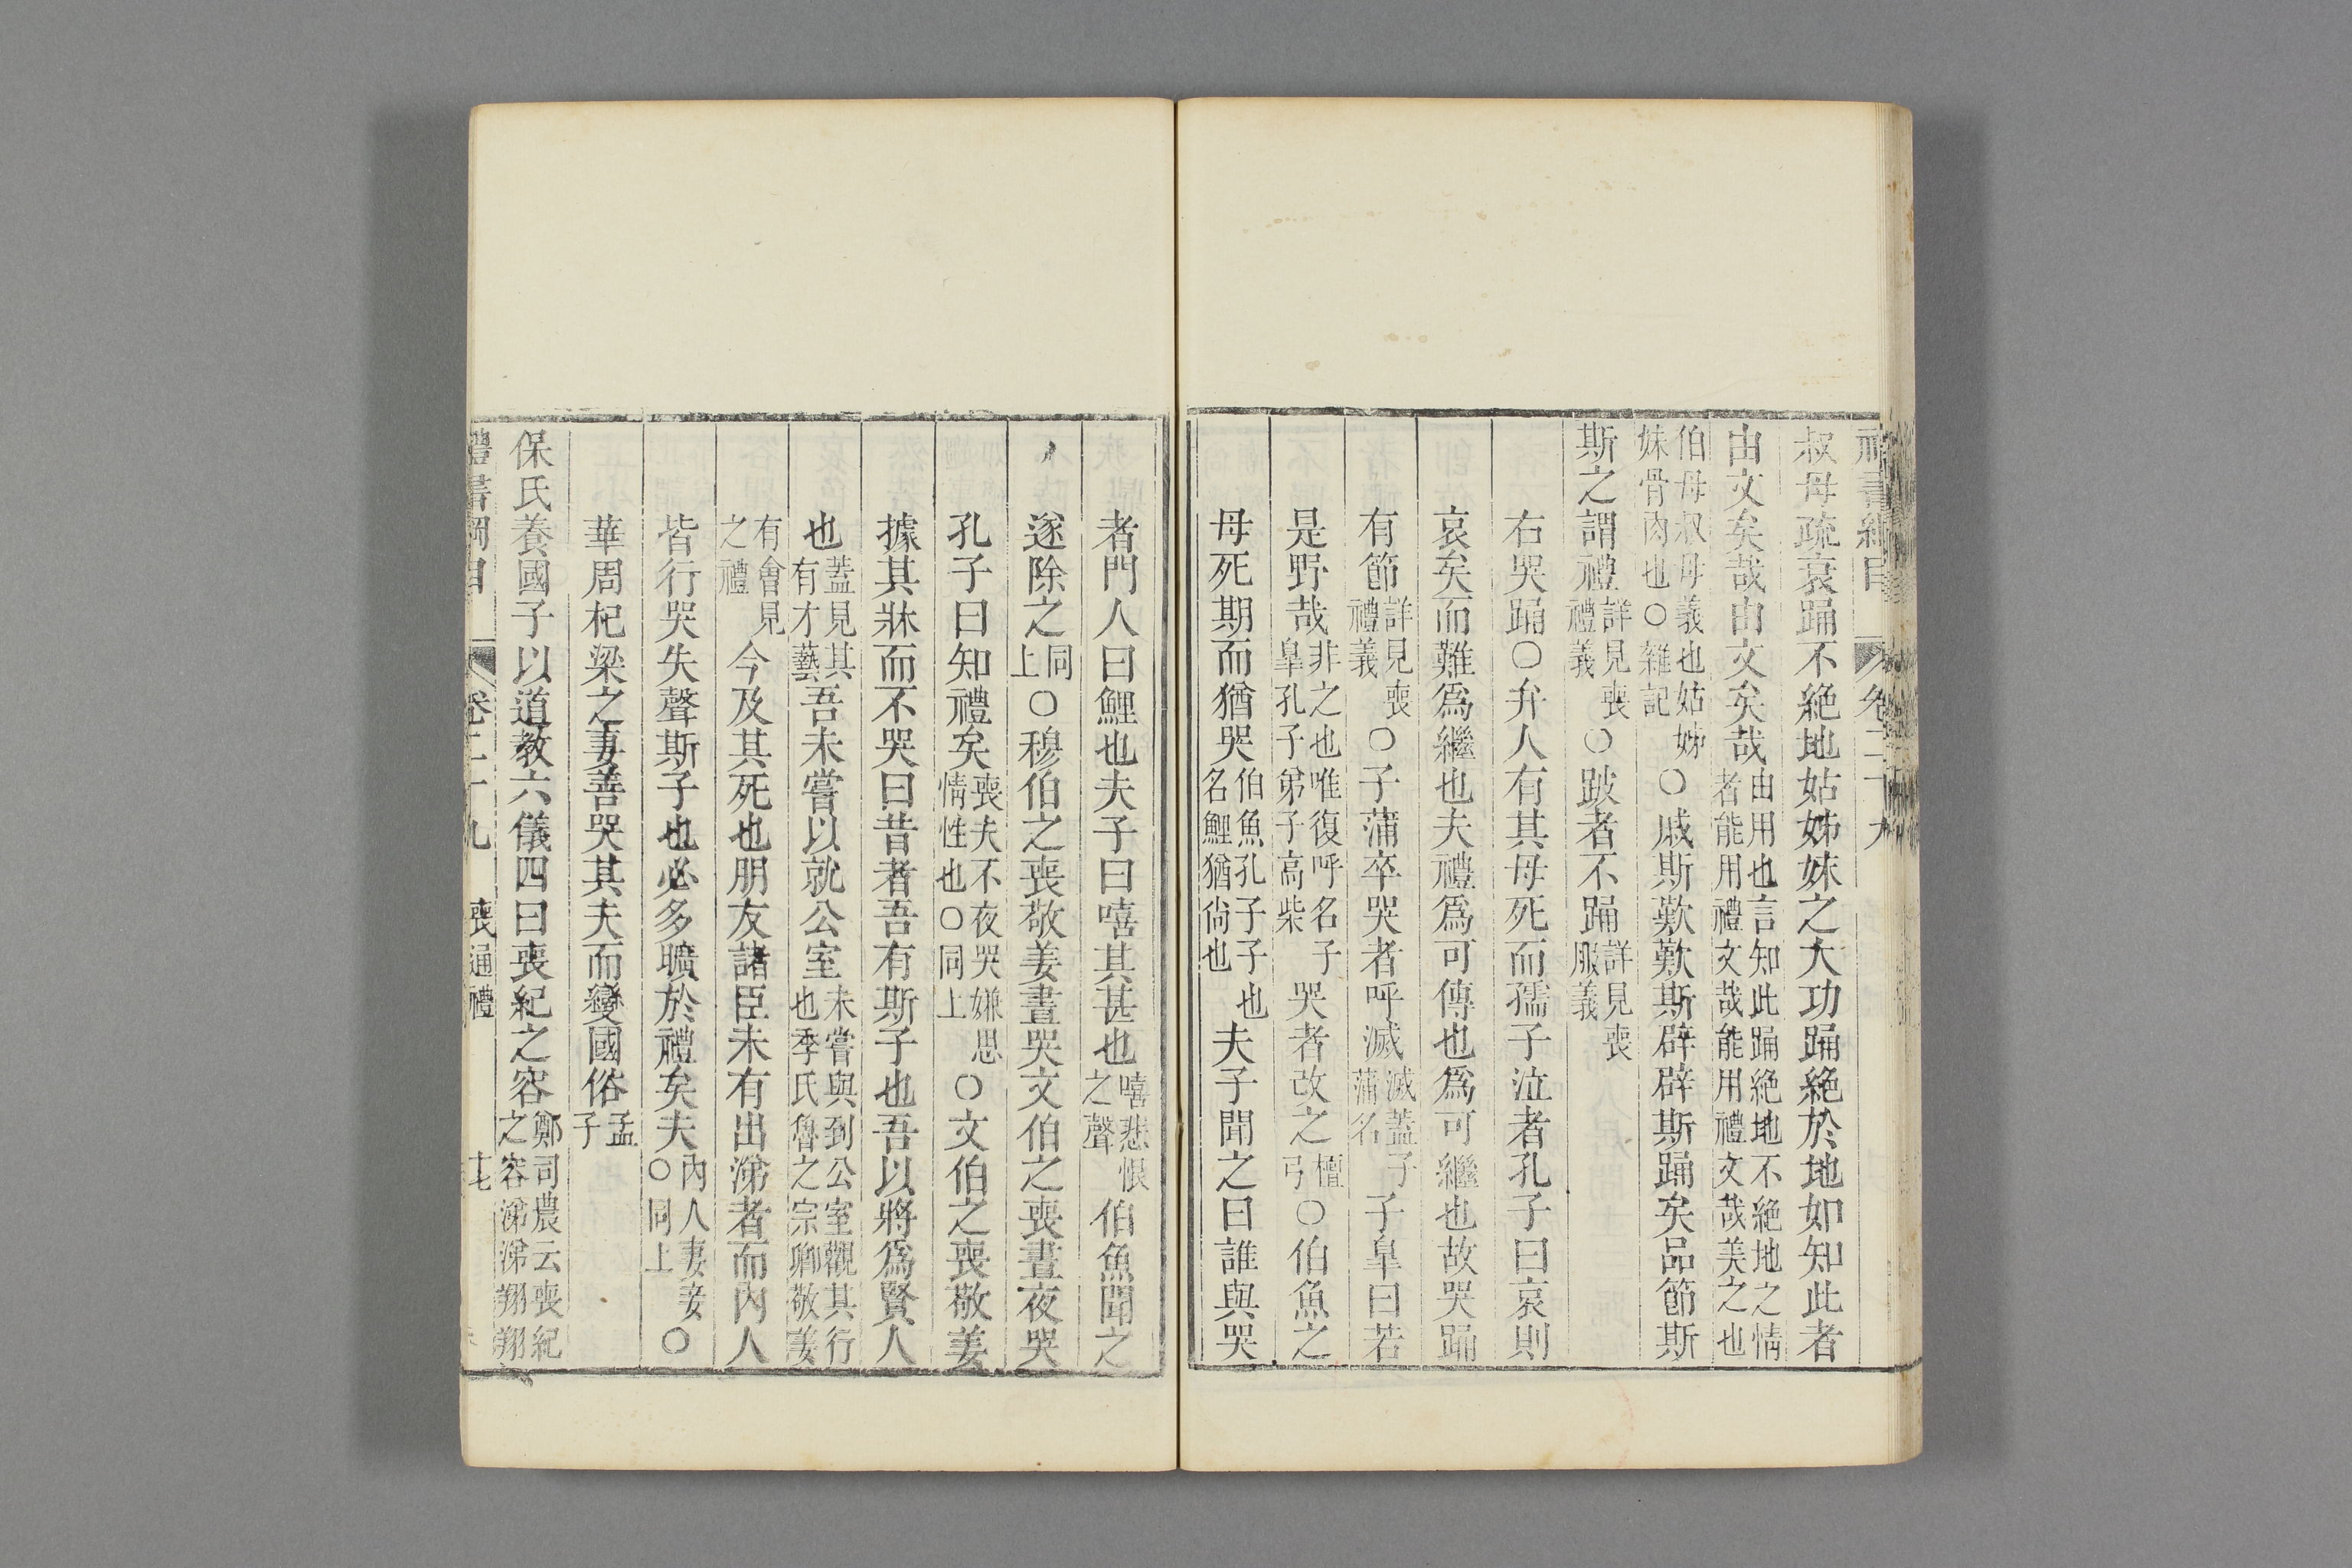 禮書綱目 卷二十九
叔母疏衰踊不絶地姑姊妹之大功踊絶於地如知此者
由文矣哉由文矣哉由用也言知此踊絶地不絶地之情者能用禮文哉能用禮文哉美之也
伯母叔母義也姑姊妹骨肉也○雜記○戚斯歎歎斯辟辟斯踊矣品節斯
斯之謂禮詳見喪禮義○跛者不踊詳見喪服義
右哭踊○弁人有其母死而孺子泣者孔子曰哀則
哀矣而難爲繼也夫禮爲可傳也爲可繼也故哭踊
有節詳見喪禮義○子蒲卒哭者呼滅滅蓋子蒲名子皐曰若
是野哉非之也唯復呼名子皐孔子弟子高柴哭者改之檀弓○伯魚之
母死期而猶哭伯魚孔子子也名鯉猶尙也夫子聞之曰誰與哭
者門人曰鯉也夫子曰嘻其甚也嘻悲恨之聲伯魚聞之
遂除之同上○穆伯之喪敬姜晝哭文伯之喪晝夜哭
孔子曰知禮矣喪夫不夜哭嫌思情性也○同上○文伯之喪敬姜
據其牀而不哭曰昔者吾有斯子也吾以將爲賢人
也蓋見其有才藝吾未嘗以就公室未嘗與到公室觀其行也季氏魯之宗卿敬姜
有會見之禮今及其死也朋友諸臣未有出涕者而內人
皆行哭失聲斯子也必多曠於禮矣夫內人妻妾○同上○
華周杞梁之妻善哭其夫而變國俗孟子
保氏養國子以道教六儀四曰喪紀之容鄭司農云喪紀之容涕涕翔翔
禮書綱目 卷二十九 喪通禮 十七